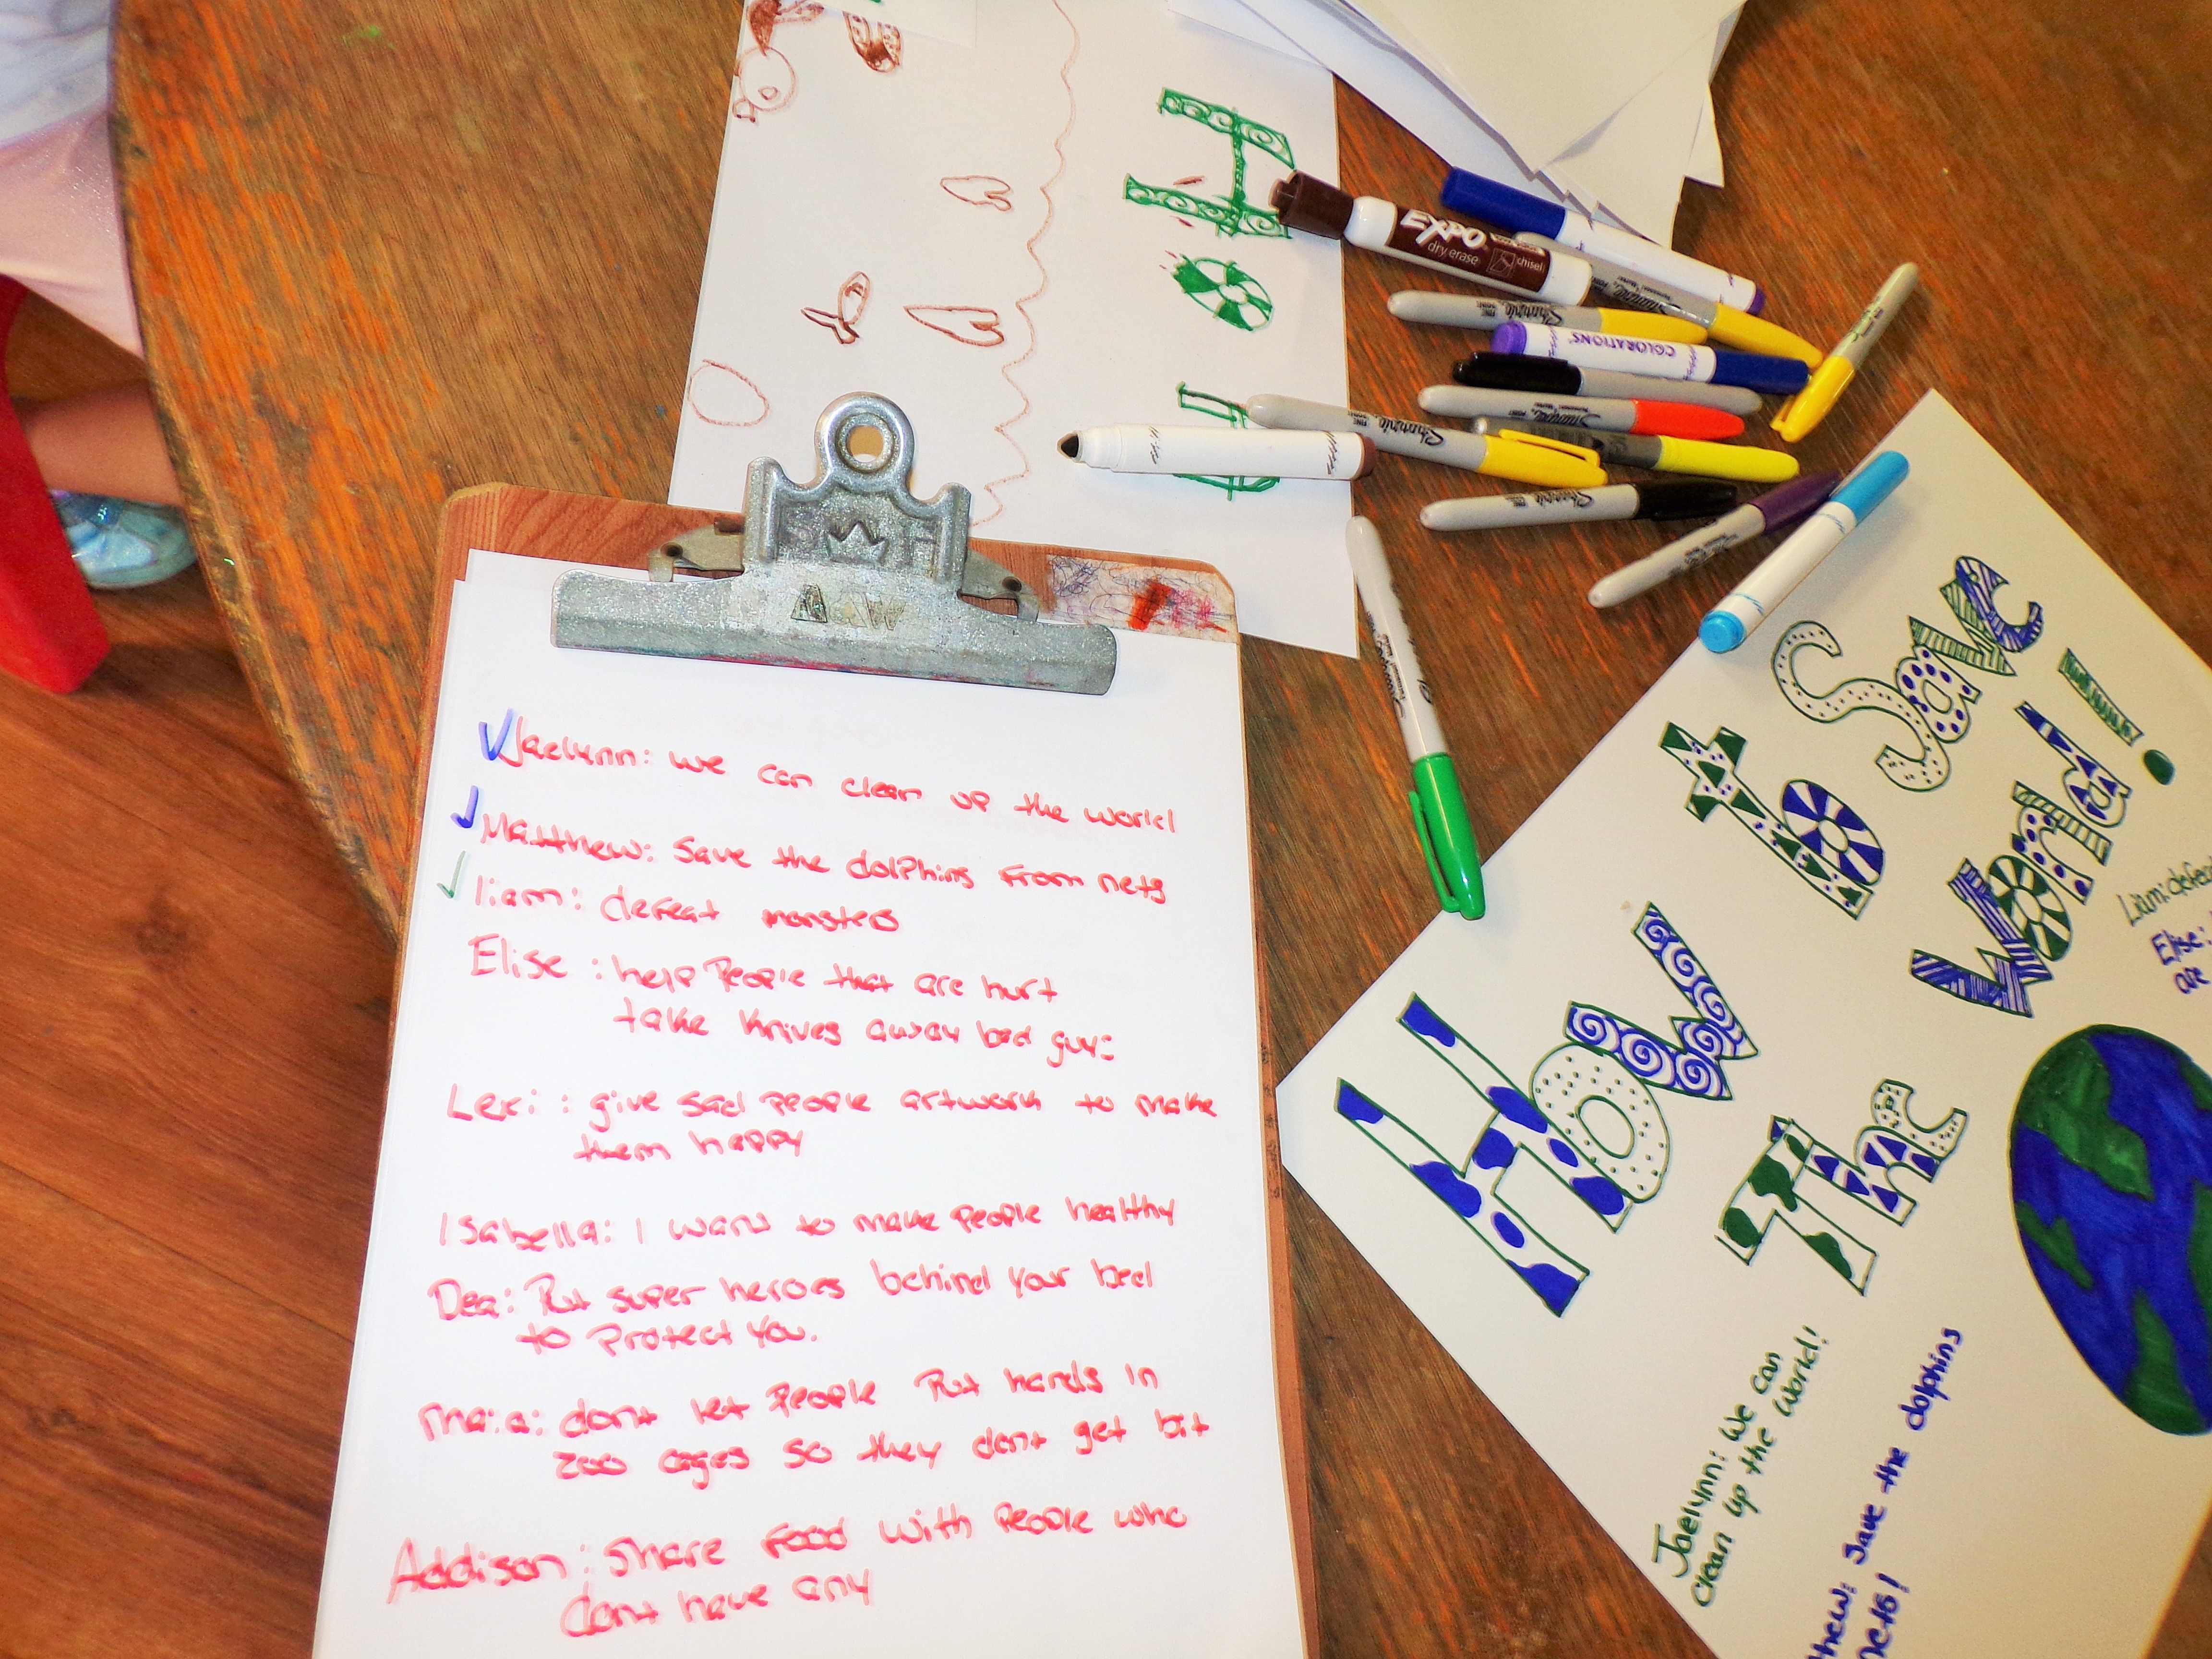 Jaelynn: we can clean up the world
Matthew: Save the dolphins from nets
liam: defeat monsters
Elise: help people that are hurt
take knives away bad guys
Lexi: give sad people artwork to make
them happy
Isabella: I want to make people healthy
Dea: Put super heroes behind your bed
to protect you.
Maia: dont let people Put hands in
zoo cages so they dont get bit
Addison: Share food with people who
dont have any
EXPO
dry erase
chisel
Sharpie
Sharpie
COLORATIONS
Sharpie
Sharpie
Sharpie
How to Save
The World!
Jaelynn: We can
clean up the world!
thew: Save the dolphins
nets!
Liam: defea
Elise:
are